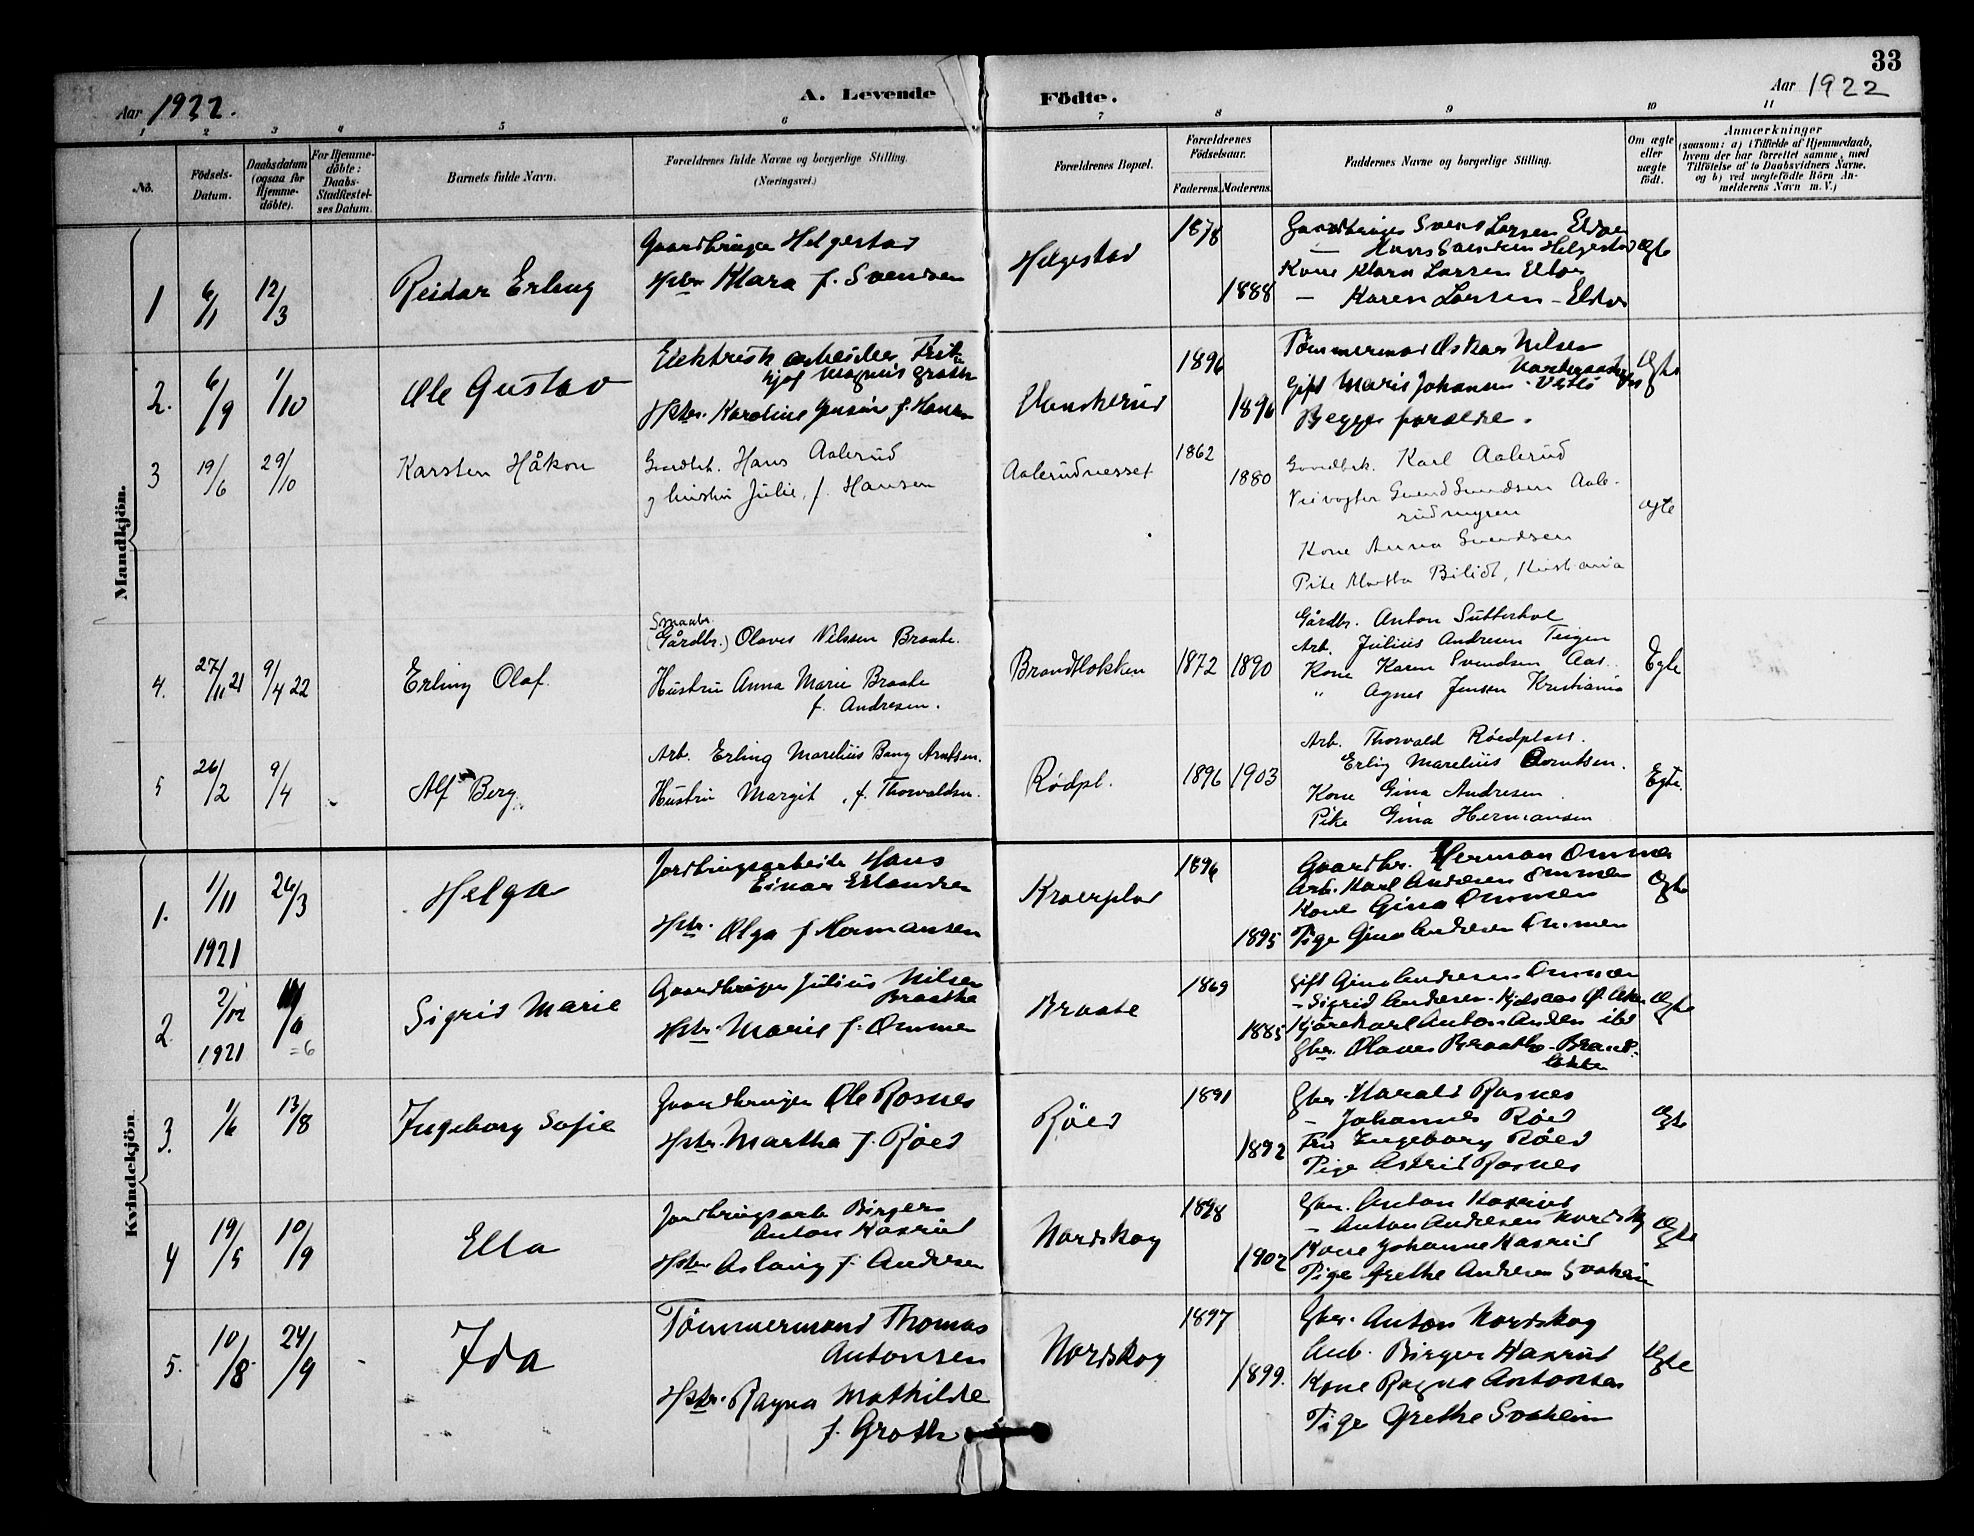 33
Aar 1922.
A. Levende
Födte.
Aar 1922
1 2 3 4 5 6 7 8 9 10 11
No.
Födsels-Datum.
Daabsdatum (ogsaa for Hjemme-döbte).
For Hjemme-döbte: Daabs-Stadfæstel-ses Datum.
Barnets fulde Navn.
Forældrenes fulde Navne og borgerlige Stilling.
(Næringsvei.)
Forældrenes Bopæl.
Forældrenes Födselsaar.
Faderens. Moderens.
Faddernes Navne og borgerlige Stilling.
Om ægte eller uægte födt.
Anmærkninger
(saasom: a) i Tilfælde af Hjemmedaab, hvem der har forrettet samme, med Tilföielse af to Daabsvidners Navne. og b) ved uægtefödte Börn An-melderens Navn m. V.)
Mandkjön.
1
6/1
12/3
Reidar Erling
Gaardbruger Helgestad
Hstr. Klara f. Svendsen
Helgestad
1878
1888
Gaardbruger Svend Larsen Eldor
— Hans Svendsen Helgestad
Kone Klara Larsen Eldor
— Karen Larsen - Eldor
Ægte
2.
6/9
1/10
Ole Gustav
Elektrisk arbeider Frit-
hjof Magnus Groth
Hstr. Karoline f. Hansen
1896
1896
Tømmermand Oskar Nilsen
Gift Marie Johansen
Begge forældre.
Ægte
3
19/6
29/10
Karsten Håkon
Gaardbr. Hans Aalerud
og hustru Julie, f. Hansen
Aalerudnesset
1862
1880
Gaardbrk. Karl Aalerud
Veivogter Svend Svendsen Aale-
rudmyren
Kone Anna Svendsen
Pike Martha Bilidt, Kristiania
ægte
4.
27/11 21
9/4 22
Erling Olaf.
Smaabr.
(Gårdbr.) Olaves Nilsen Braate.
Hustru Anna Marie Braate
f. Andresen.
Brandtløkken
1872
1890
Gårdbr. Anton Sutterhol
Arb. Julius Andresen Teigen
Kone Karen Svendsen Aas.
" Agnes Jensen Kristiania
Egte
5
26/2
9/4
Alf Berg.
Arb. Erling Marelius Bang Arntsen.
Hustru Margit, f. Thorvaldsen.
Rødpl.
1896
1903
Arb. Thorvald Röedplass.
Erlig Marelius Arntsen.
Kone Gina Andresen
Pike Gina Hermansen
Egte.
Kvindekjön
1.
1/11
1921
26/3
Helga
Jordbrugsarbeider Hans
Einar Erlandsen
Hstr. Olga f. Hermansen
Kroerplad
1896
1895
Gaardbr. Herman Ommen
Arb. Karl Andresen Ommen
Kone Gina Ommen
Pige Gina Andresen Ommen
Ægte
2.
2/12
1921
/6
=6
Sigrid Marie
Gaardbruger Julius Nilsen
Braathe
Hstr. Marie f. Ommen
Braate
1869
1885
Gift Gina Andresen Ommen
- Sigrid Andresen
Kjørekarl Anton ibd
Gbr. Olaves Braathe - Brand-
løkken
Ægte
3.
1/6
13/8
Ingeborg Sofie
Gaardbruger Ole Rosnes
Hstr. Martha f. Røed
Røed
1891
1892
Gbr. Harald Rosnes
- Johannes Røed
Fru Ingeborg Røed
Pige Astrid Rosnes
Ægte
4
19/5
10/9
Ella
Jordbrugsarb. Birger
Anton Haxrud
Hstr. Aslaug f. Andresen
Nordskog
1898
1902
Gbr. Anton Haxrud
- Anton Andresen Nordskog
Kone Johanne Haxrud
Pige Grethe Andresen Svaheim
Ægte
5.
10/8
24/9
Ida
Tømmermand Thomas
Antonsen
Hstr. Ragna Mathilde
f. Groth
Nordskog
1897
1899.
Gbr. Anton Nordskog
Arb. Birger Haxrud
Kone Ragna Antonsen
Pige Grethe Svaheim
Ægte